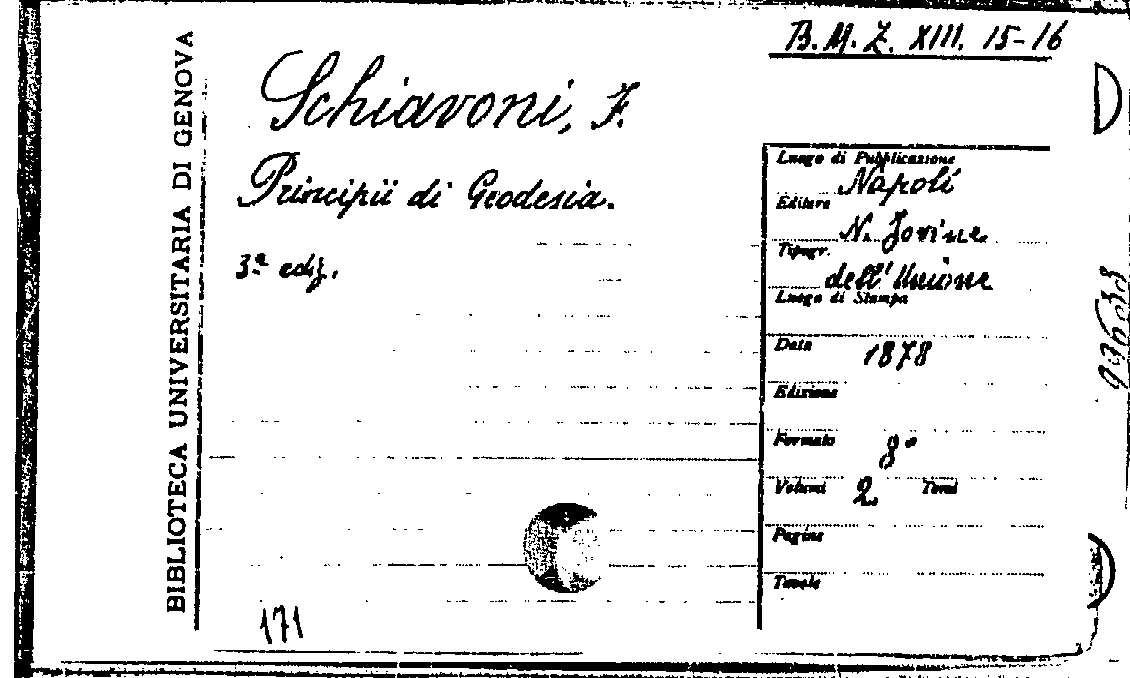 BIBLIOTECA UNIVERSITARIA DI GENOVA
B. M. Z. XIII. 15-16
Schiavoni, F.
Principii di Geodesia.
3ª ediz.
Luogo di Pubblicazione
Napoli
Editore
N. Jovine
Tipogr.
dell'Unione
Luogo di Stampa
Data 1878
Edizione
Formato 8°
Volumi 2. Tomi
Pagine
Tavole
171